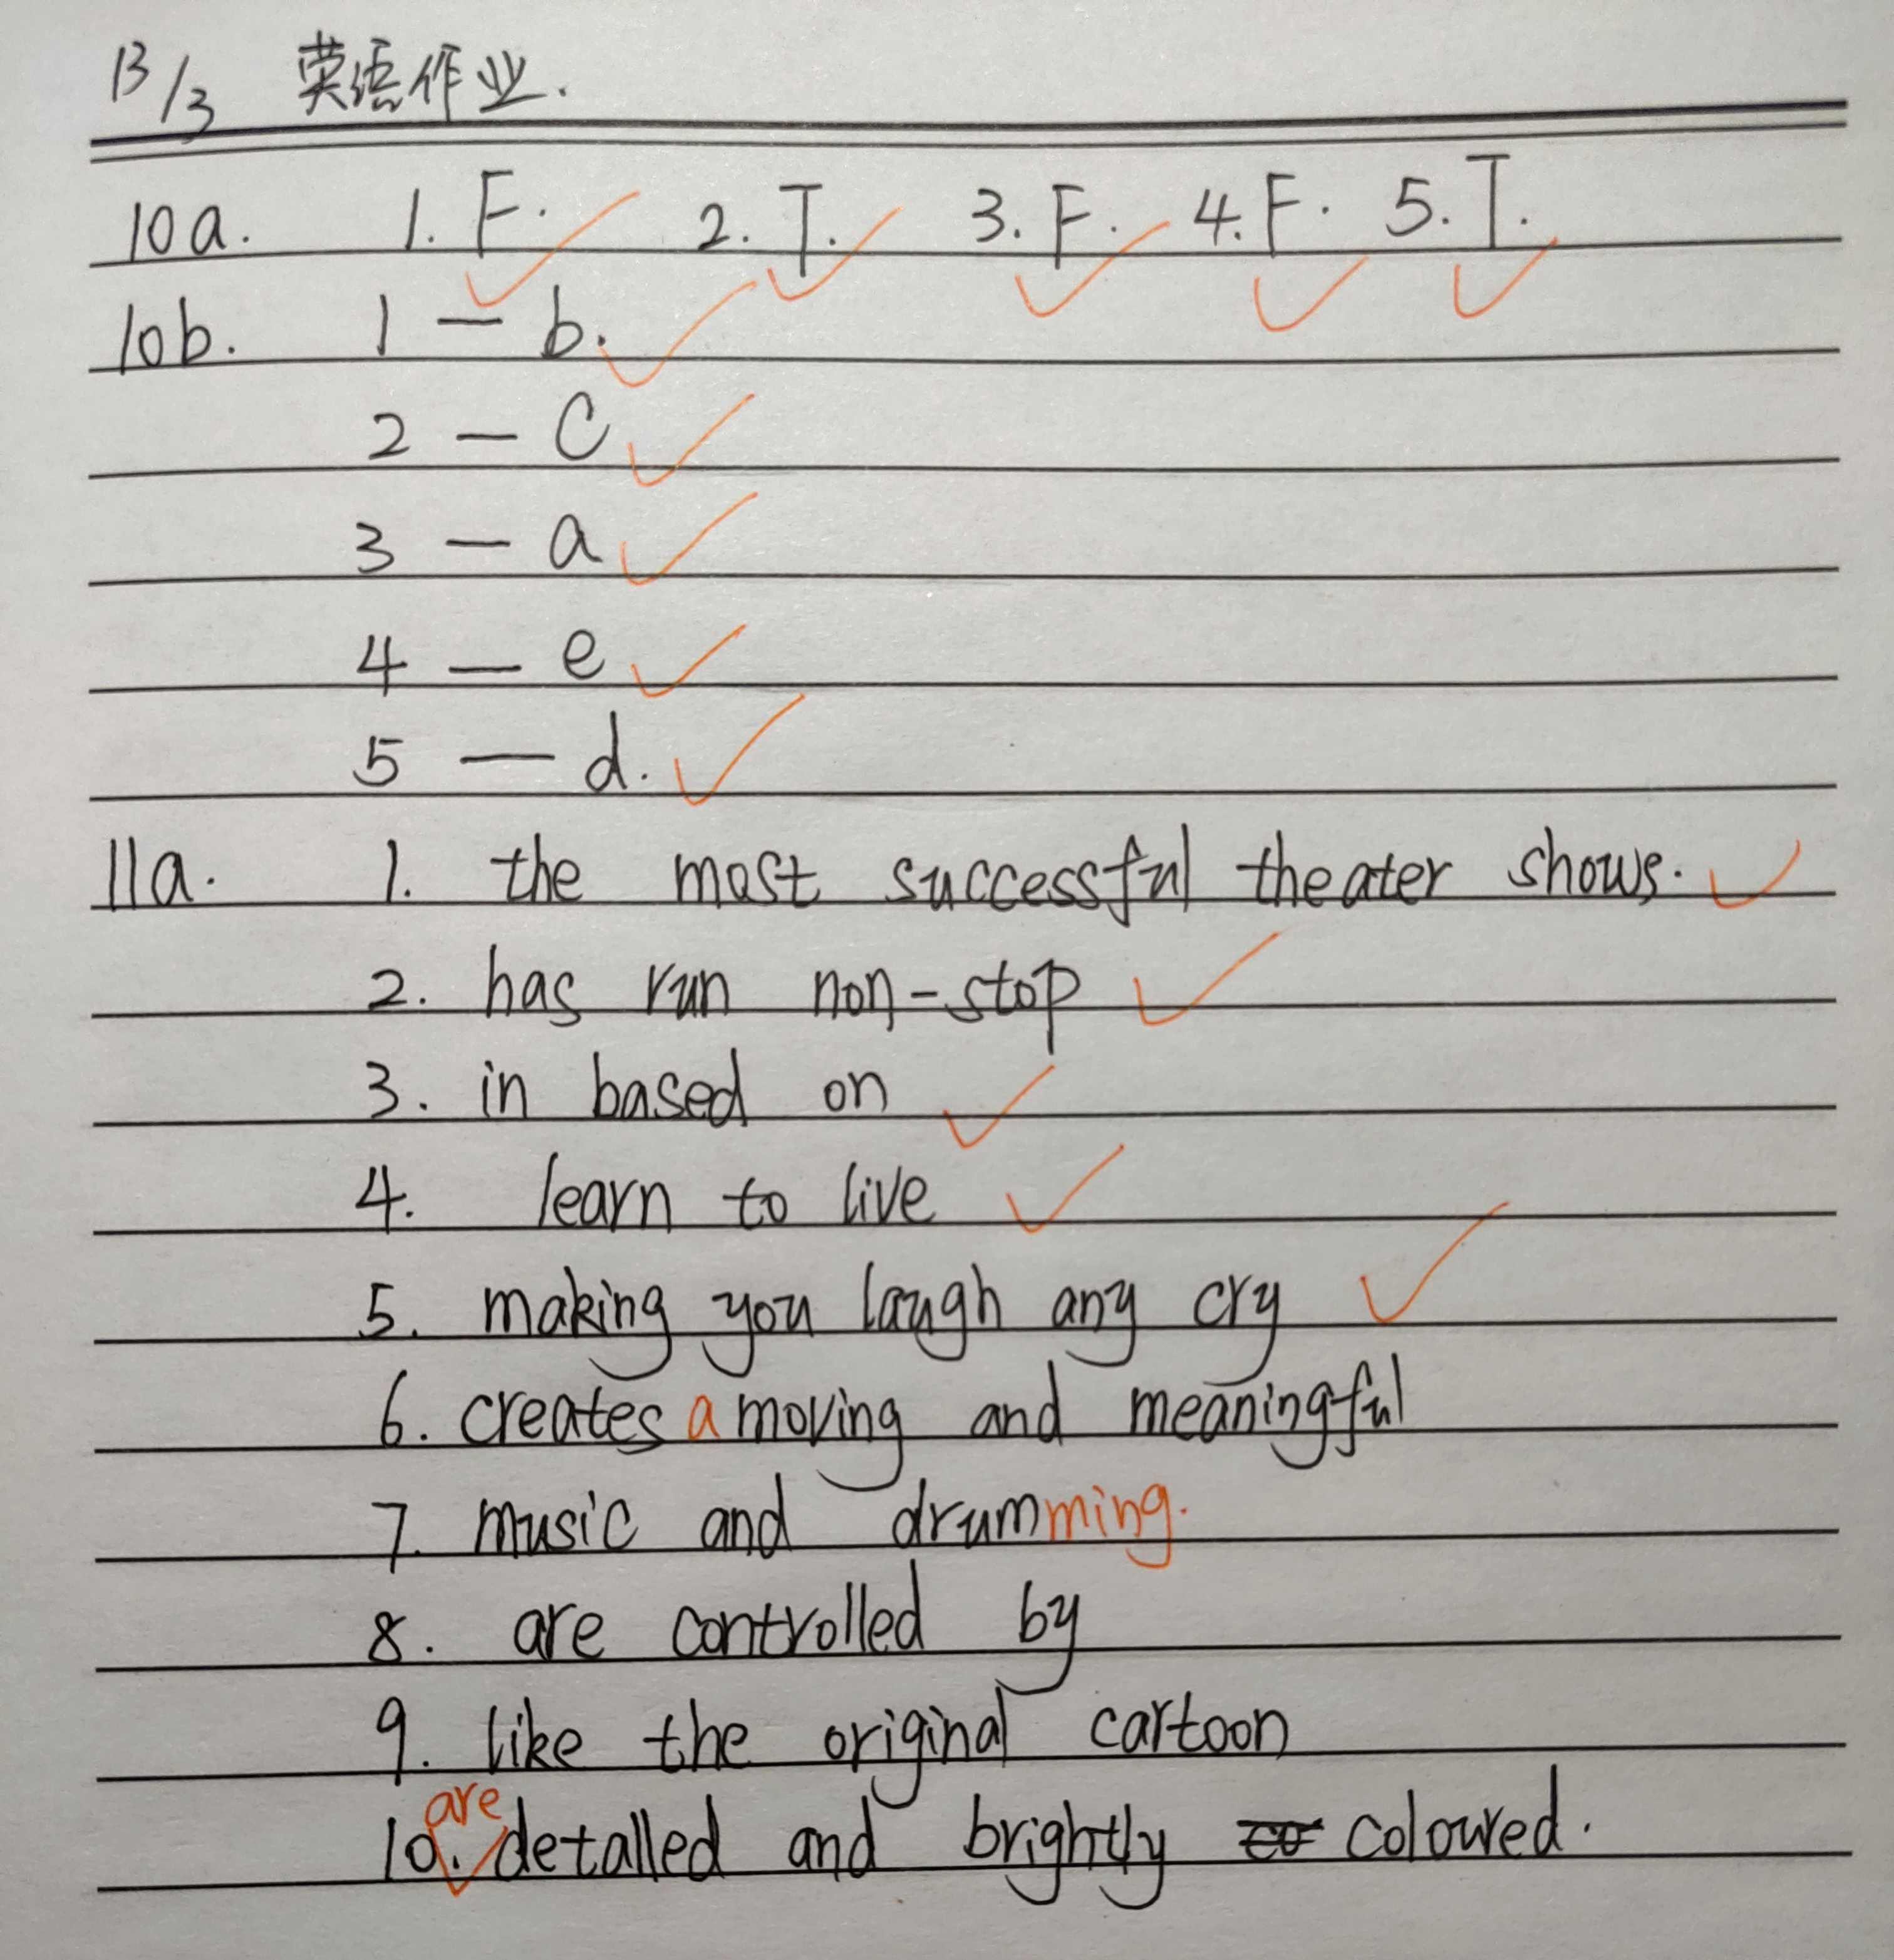 13/3 英语作业.
10a. 1. F. 2. T. 3. F. 4. F. 5. T.
10b. 1 — b.
2 — C
3 — a
4 — e
5 — d.
11a. 1. the most successful theater shows.
2. has run non-stop
3. in based on
4. learn to live
5. making you laugh any cry
6. creates a moving and meaningful
7. music and drumming.
8. are controlled by
9. like the original cartoon
are
10. detalled and brightly co coloured.